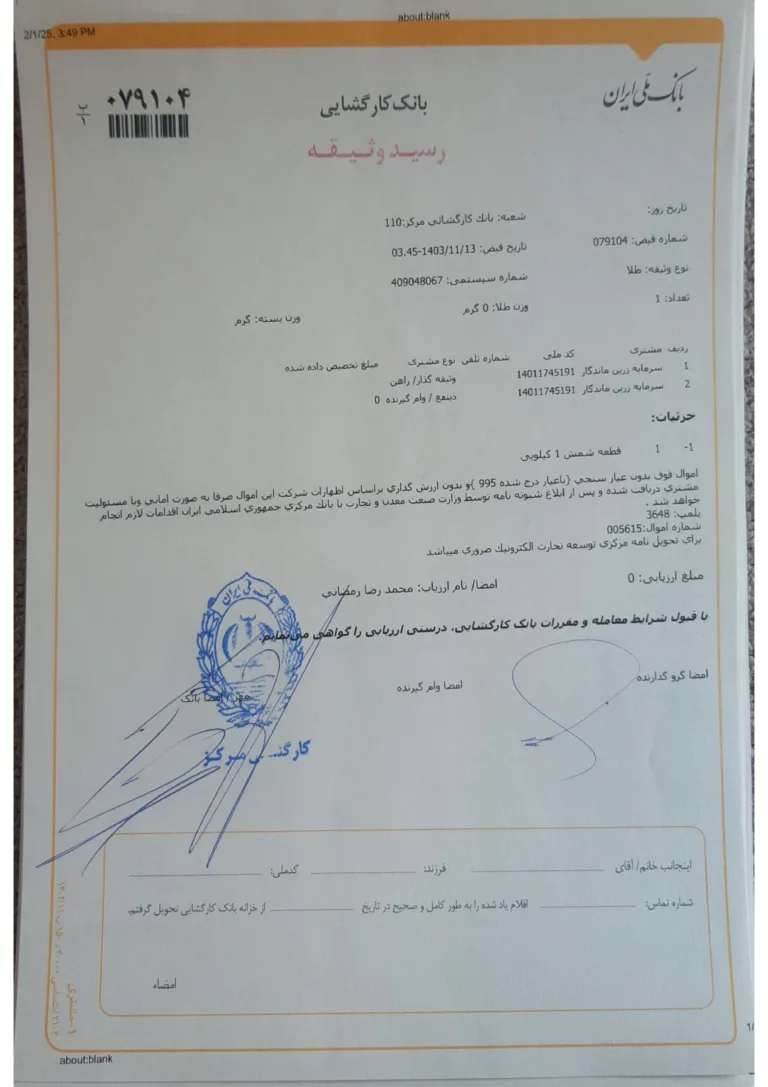 about:blank
2/1/25, 3:49 PM
بانک ملی ایران
بانک کارگشایی
۰۷۹۱۰۴
ب
۱
رسید وثیقه
تاریخ روز:
شعبه: بانك كارگشائى مركز:110
شماره قبض: 079104
تاریخ قبض: 1403/11/13-03.45
نوع وثیقه: طلا
شماره سیستمی: 409048067
تعداد: 1
وزن طلا: 0 گرم
وزن بسته: گرم
ردیف مشتری کد ملی شماره تلفن نوع مشتری مبلغ تخصیص داده شده
1 سرمایه زرین ماندگار 14011745191 وثیقه گذار/ راهن
2 سرمایه زرین ماندگار 14011745191 ذینفع / وام گیرنده 0
جزئیات:
1- 1 قطعه شمش 1 کیلویی
اموال فوق بدون عيار سنجي {باعيار درج شده 995 }و بدون ارزش گذاري براساس اظهارات شركت اين اموال صرفا به صورت اماني وبا مسئوليت
مشتري دريافت شده و پس از ابلاغ شيوه نامه توسط وزارت صنعت معدن و تجارت يا بانك مركزي جمهوري اسلامي ايران اقدامات لازم انجام
خواهد شد .
پلمپ: 3648
شماره اموال:005615
براي تحويل نامه مركزي توسعه تجارت الكترونيك ضروري ميباشد
مبلغ ارزیابی: 0
امضا/ نام ارزیاب: محمد رضا رمضاني
با قبول شرایط معامله و مقررات بانک کارگشایی، درستی ارزیابی را گواهی می‌نمایم.
امضا گرو گذارنده
امضا وام گیرنده
مهر/ امضا بانک
بانک ملی ایران
مرکز
اینجانب خانم/ آقای
فرزند:
کدملی:
شماره تماس:
اقلام یاد شده را به طور کامل و صحیح در تاریخ
از خزانه بانک کارگشایی تحویل گرفتم.
امضاء
۱-مشتری
about:blank
1/